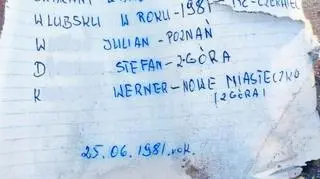 W LUBSKU W ROKU-1981-
W JULIAN-POZNAŃ
D STEFAN-Z.GÓRA
K WERNER-NOWE MIASTECZKO
(Z.GÓRA)
25.06.1981.rok.